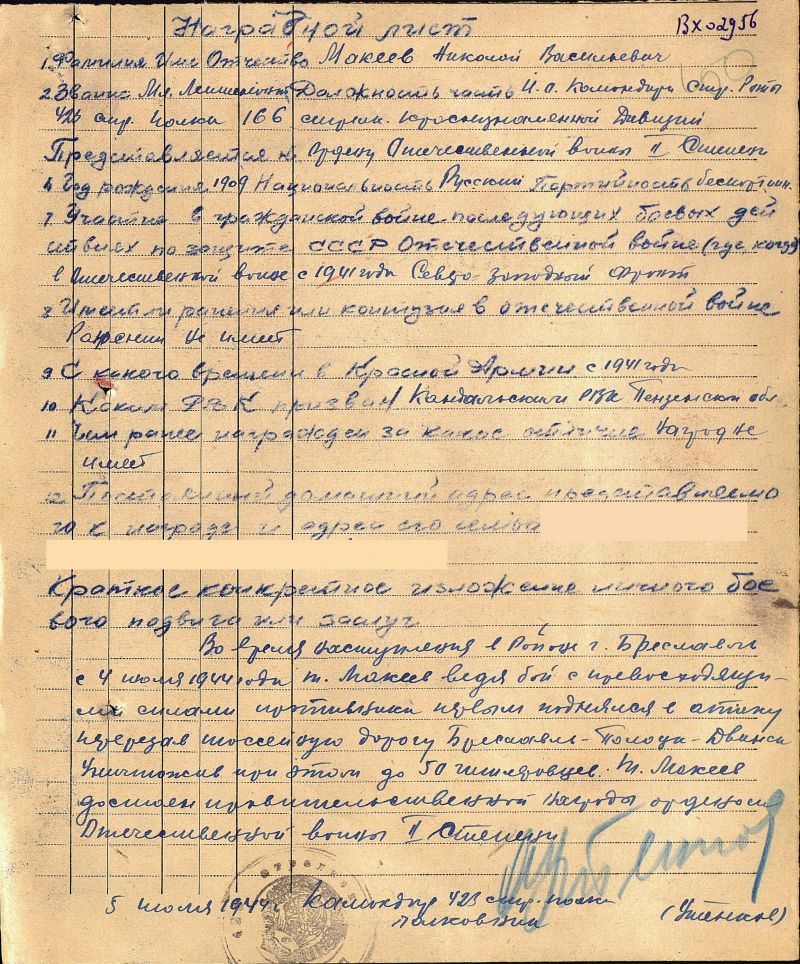 Наградной лист
Вх 02956
1 Фамилия Имя Отчество Макеев Николой Васильевич
2 Звание Мл. Лейтенант Должность часть И.о. Командира стр. Роты
423 стр. Полка 166 стрелк. Краснознаменной Дивизии
Представляется к Ордену Отечественной войны II Степени
6 Год рождения 1909 Национальность Русский Партийность беспартийн.
7 Участие в гражданской войне последующих боевых дей
ствиях по защите СССР Отечественной войне (где когда)
в Отечественной войне с 1941 года Северо-Западный Фронт
8 Имеет ли ранения или контузия в отечественной войне
Ранении не имеет
9 С какого времени в Красной Армии с 1941 года
10 Каким РВК призван Пензенской обл.
11 Чем ранее награжден за какие отличие Наград не
имеет
12 Постоянный домашний адрес представляемо
го к награде и адрес его семьи
Краткое конкретное изложение личного бое
вого подвига или заслуг
Во время наступления в Районе г. Бреславль
с 4 июля 1944 года т. Макеев ведя бой с превосходящи-
ми силами противника первым поднялся в атаку
перерезав шоссейную дорогу Бреславль-Полоцк-Двинск
Уничтожив при этом до 50 гитлеровцев. Т. Макеев
достоен правительственной награды орденом
Отечественной войны II Степени
5 июля 1944 г Командир 423 стр. полка
полковник (Утенков)